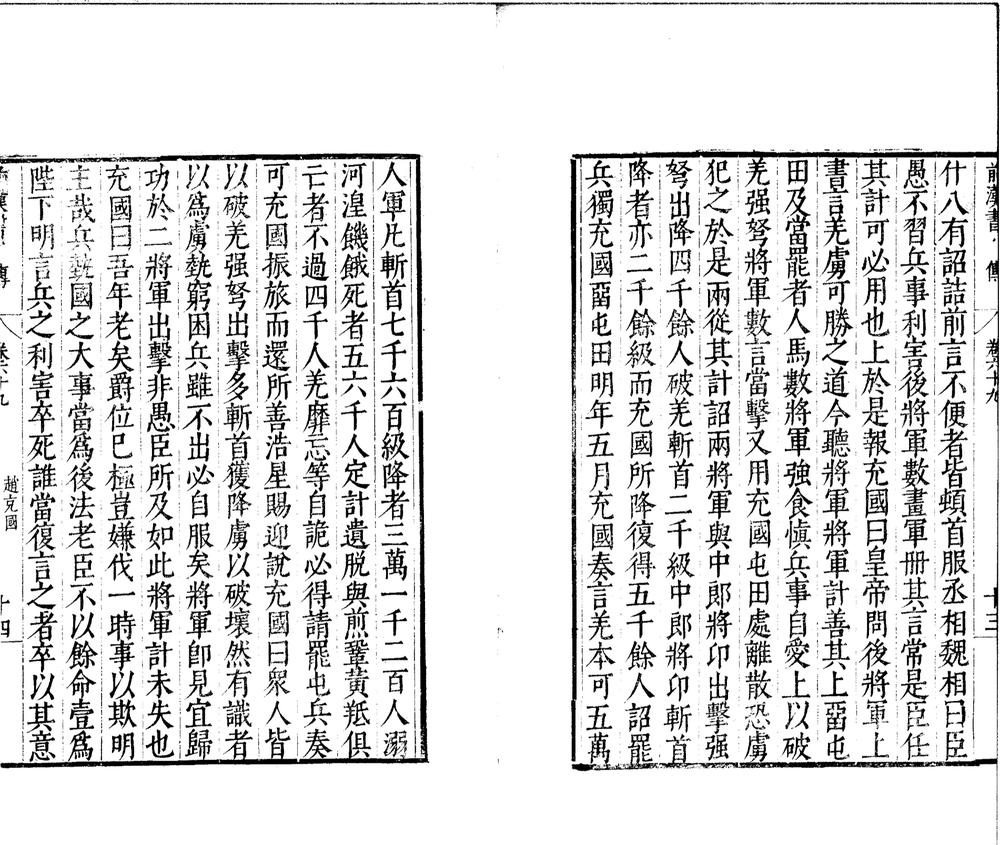 前漢書 傳 卷六十九 十三
什八有詔詰前言不便者皆頓首服丞相魏相曰臣
愚不習兵事利害後將軍數畫軍册其言常是臣任
其計可必用也上於是報充國曰皇帝問後將軍上
書言羌虜可勝之道今聽將軍將軍計善其上畱屯
田及當罷者人馬數將軍強食慎兵事自愛上以破
羌强弩將軍數言當擊又用充國屯田處離散恐虜
犯之於是兩從其計詔兩將軍與中郎將卬出擊强
弩出降四千餘人破羌斬首二千級中郎將卬斬首
降者亦二千餘級而充國所降復得五千餘人詔罷
兵獨充國畱屯田明年五月充國奏言羌本可五萬
人軍凡斬首七千六百級降者三萬一千二百人溺
河湟饑餓死者五六千人定計遺脱與煎鞏黃羝俱
亡者不過四千人羌靡忘等自詭必得請罷屯兵奏
可充國振旅而還所善浩星賜迎說充國曰衆人皆
以破羌强弩出擊多斬首獲降虜以破壞然有識者
以爲虜埶窮困兵雖不出必自服矣將軍卽見宜歸
功於二將軍出擊非愚臣所及如此將軍計未失也
充國曰吾年老矣爵位已極豈嫌伐一時事以欺明
主哉兵埶國之大事當爲後法老臣不以餘命壹爲
陛下明言兵之利害卒死誰當復言之者卒以其意
前漢書 傳 卷六十九 趙充國 十四